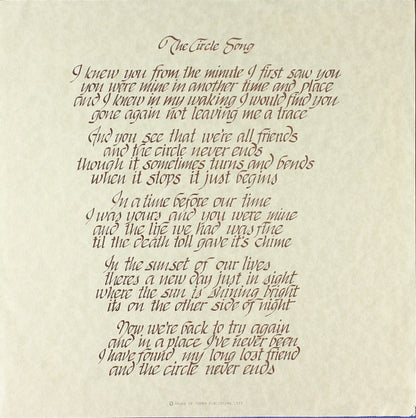 The Circle Song
I knew you from the minute I first saw you
you were mine in another time and place
and I knew in my waking I would find you
gone again not leaving me a trace
And you see that we're all friends
and the circle never ends
though it sometimes turns and bends
when it stops it just begins
In a time before our time
I was yours and you were mine
and the life we had was fine
til the death toll gave it's chime
In the sunset of our lives
theres a new day just in sight
where the sun is shining bright
its on the other side of night
Now we're back to try again
and in a place I've never been
I have found my long lost friend
and the circle never ends